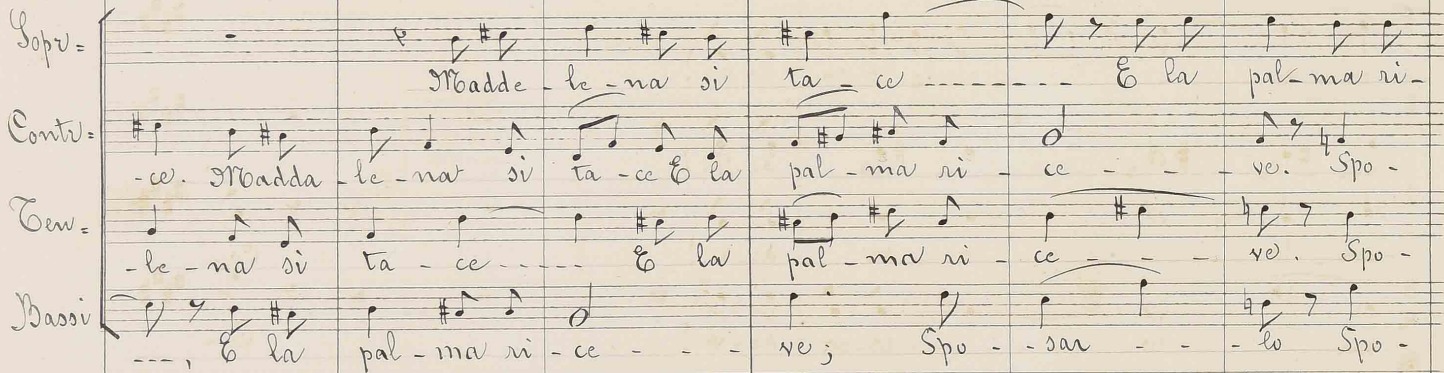 Sopr = Madde - le - na si ta - ce - - - - - - - - E la pal - ma ri -
Contr = - ce. Madda - le - na si ta - ce E la pal - ma ri - ce - - - ve. Spo -
Ten = - le - na si ta - ce - - - - - E la pal - ma ri - ce - - - ve. Spo -
Bassi - - -, E la pal - ma ri - ce - - - ve; Spo - - sar - - - lo Spo -